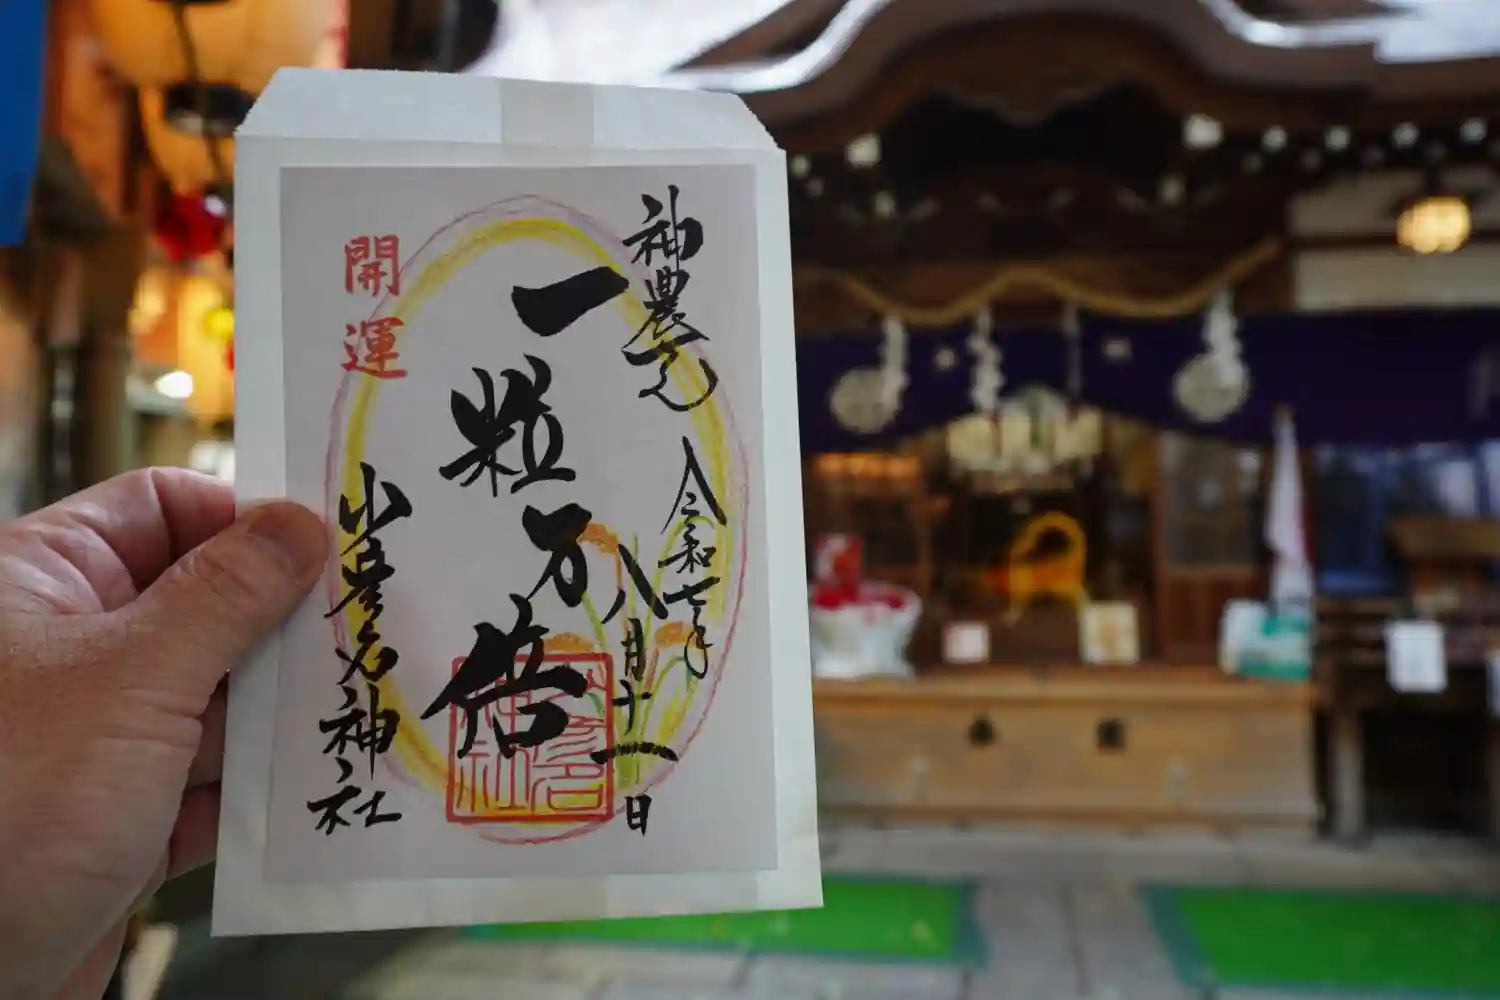 神農さん
令和七年
八月十一日
一粒万倍
開運
少彦名神社